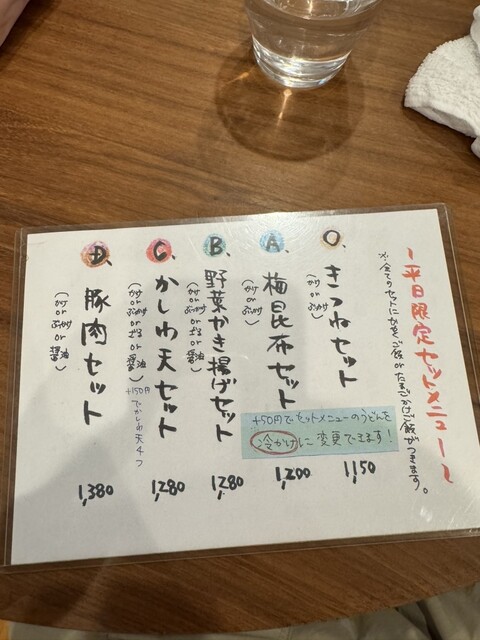 ～平日限定セットメニュー～
※全てのセットにかやくご飯 or たまごかけご飯がつきます。
O、
きつねセット
(かけ or ぶっかけ)
1,150
A、
梅昆布セット
(かけ or ぶっかけ or 醤油)
1,200
B、
野菜かき揚げセット
(かけ or ぶっかけ or ざる or 醤油)
1,280
C、
かしわ天セット
(かけ or ぶっかけ or ざる or 醤油)
+150円でかしわ天4つ
1,280
D、
豚肉セット
(かけ or ぶっかけ or 醤油)
1,380
+50円でセットメニューのうどんを
冷かけに変更できます！